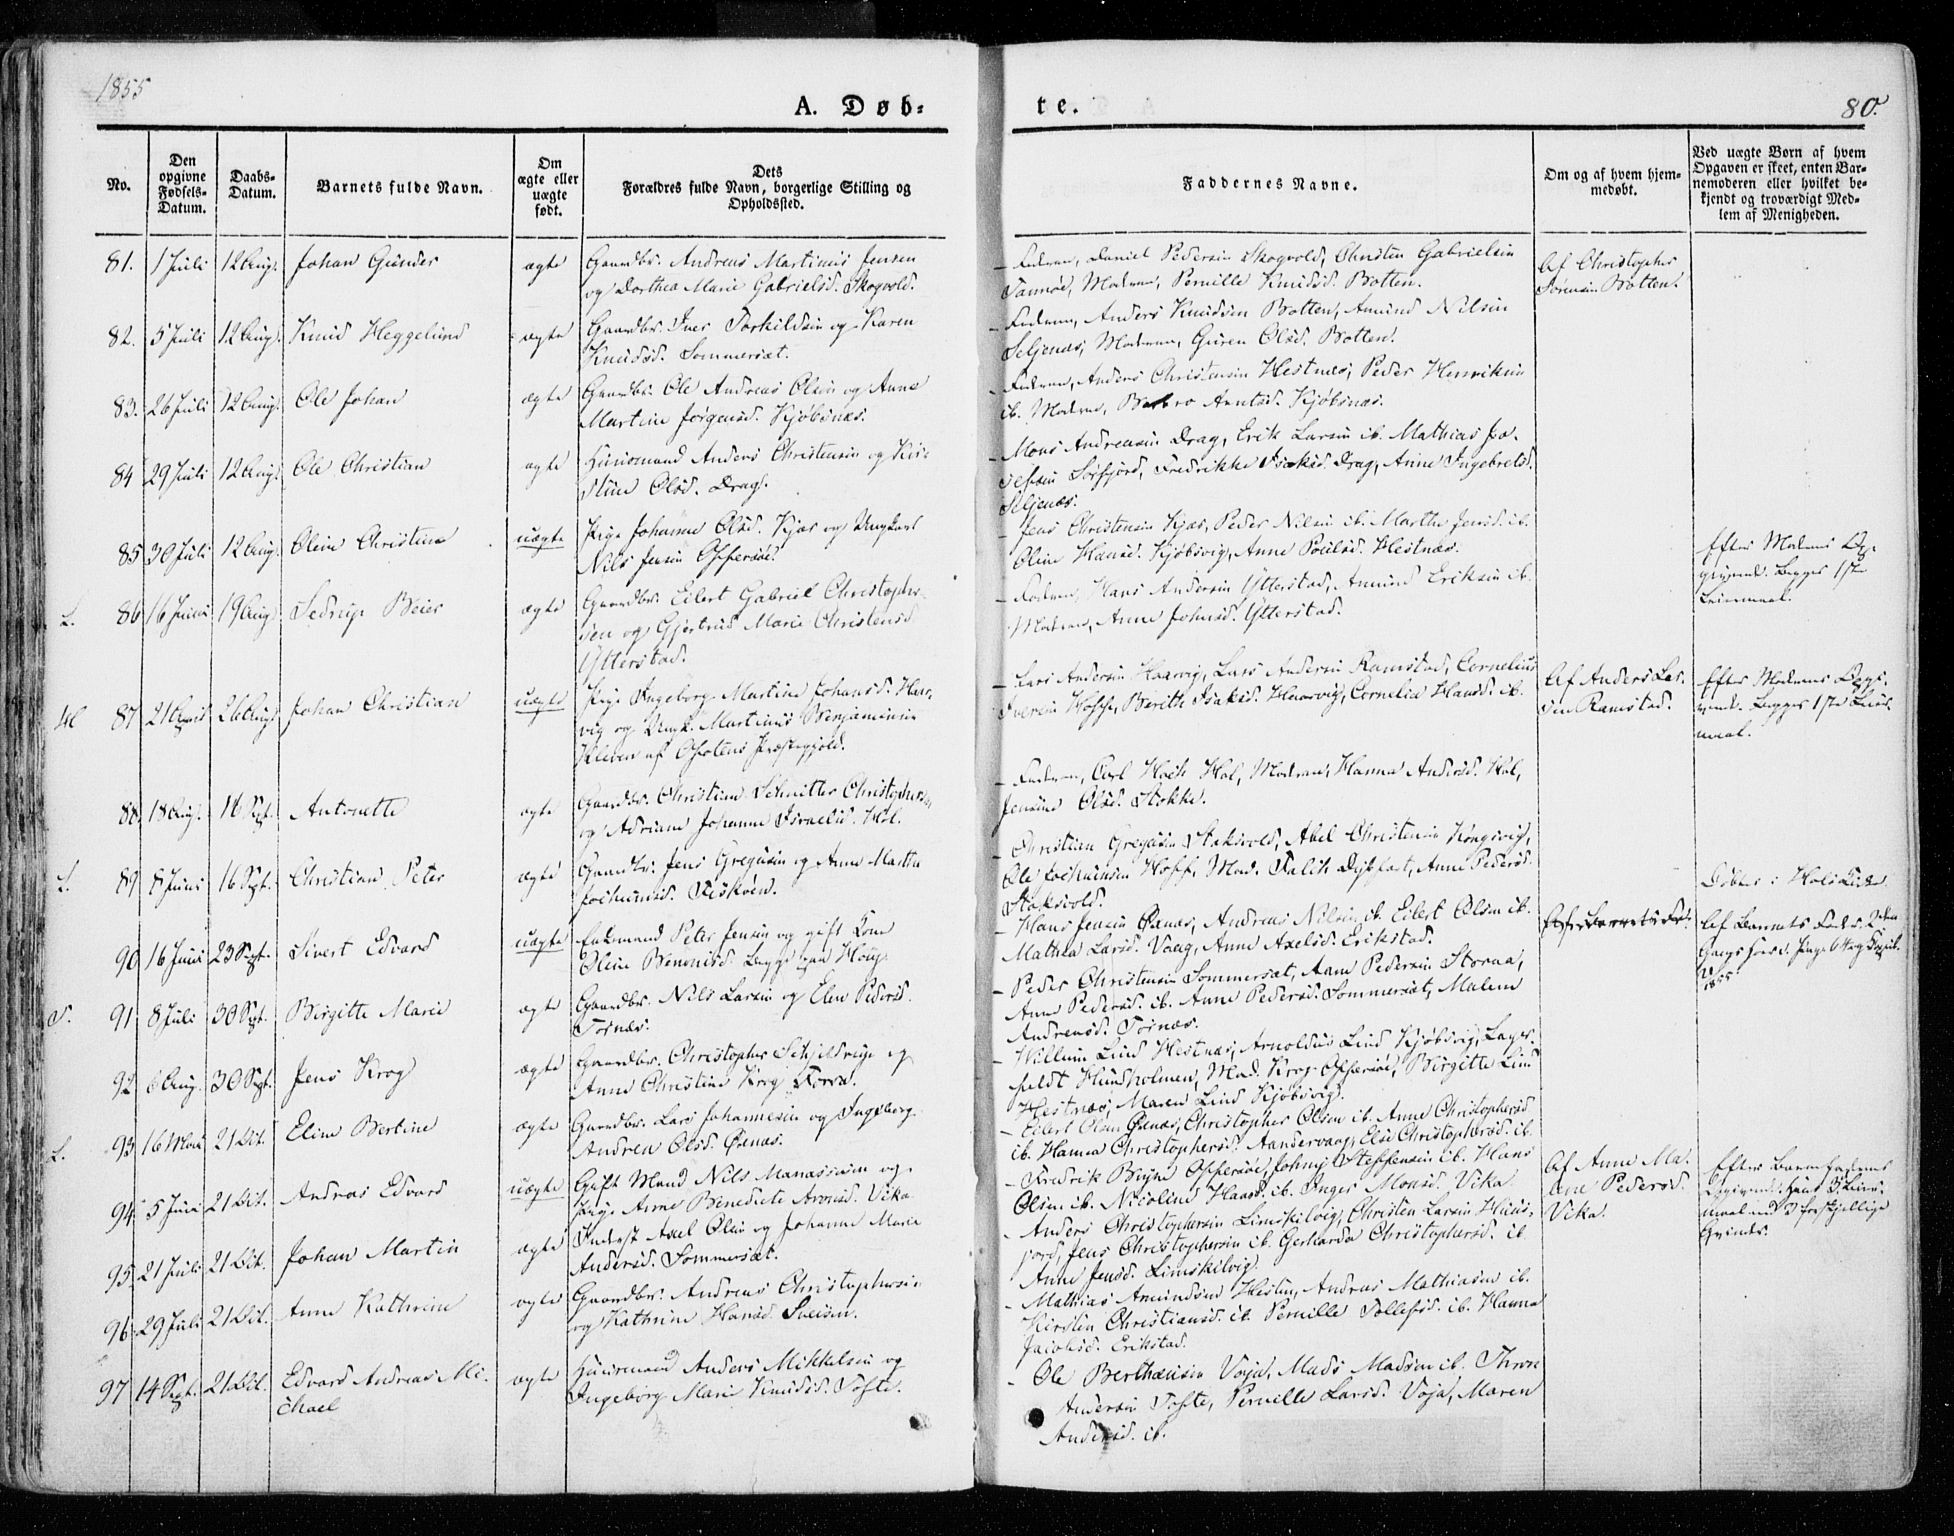 1855
A. Døb-
te.
80.
No.
Den opgivne Fødsels-Datum.
Daabs-Datum.
Barnets fulde Navn.
Om ægte eller uægte født.
Dets Forældres fulde Navn, borgerlige Stilling og Opholdssted.
Faddernes Navne.
Om og af hvem hjem-medøbt.
Ved uægte Børn af hvem Opgaven er skeet, enten Bar-nemoderen eller hvilket be-kjendt og troværdigt Med-lem af Menigheden.
81. 1 Juli 12 Aug. Johan Gunder ægte Gaardbr. Andreas Martinus Jensen
og Dorthea Marie Gabrielsd. Skogvold.
Faderen, Daniel Pedersen Skogvold, Christen Gabrielsen
Moderen, Pernille Knudsd. Botten.
Af Christopher
Sørensen Botten.
82. 5 Juli 12 Aug. Knud Heggelund ægte Gaardbr. Iver Torkildsen og Karen
Knudsd. Sommersæt.
Faderen, Anders Knudsen Botten, Amund Nilsen
Seljenæs, Moderen, Guren Olsd. Botten.
83. 26 Juli 12 Aug. Ole Johan ægte Gaardbr. Ole Andreas Olsen og Anne
Martine Jørgensd. Kjøbsnæs.
Faderen, Anders Christensen Hestnæs, Peder Henriksen
ib. Moderen, Barbro Arntsd. Kjøbsnæs.
84 29 Juli 12 Aug. Ole Christian ægte Huusmand Anders Christensen og Kir-
stine Olsd. Drag.
Mons Andreasen Drag, Erik Larsen ib. Mathias Jo-
sefsen Sørfjord, Fredrikke Isaksd. Drag, Anne Ingebretsd.
Seljenæs.
85 30 Juli 12 Aug. Oline Christine uægte Pige Johanne Olsd. Kjær og Ungkarl
Nils Jensen Offersøe.
Jens Christensen Kjær, Peder Nilsen ib. Marthe Jensd. ib.
Oline Hansd. Kjøbsvig, Anne Poulsd. Hestnæs.
Efter Moderens Op-
givende. Begges 1ste
Leiermaal.
L. 86 16 Juni 19 Aug. Sedrup Beier ægte Gaardbr. Eilert Gabriel Christopher-
sen og Gjertrud Marie Christensd.
Ytterstad.
Faderen, Hans Andersen Ytterstad, Amund Eriksen ib.
Moderen, Anne Johnsd. Ytterstad.
87 21 April 26 Aug. Johan Christian uægte Pige Ingeborg Martine Johansd. Haar-
vig og Ungk. Martinus Benjaminsen
Kleven af Ofotens Præstegjeld.
Lars Andersen Haarvig, Lars Andersen Ramstad, Cornelius
Iversen Hoff, Berith Isaksd. Haarvig, Cornelia Hansd. ib.
Af Anders Lar-
sen Ramstad.
Efter Moderens Opgi-
vende. Begges 1ste Leier-
maal.
88 18 Aug. 16 Sept. Antonette ægte Gaardbr. Christian Schnitler Christophersen
og Adriane Johanne Israelsd. Hol.
Faderen, Carl Hock Hol, Moderen, Hanna Andersd. Hol,
Jensine Olsd. Stokke.
L. 89 8 Juni 16 Sept. Christian Peter ægte Gaardbr. Jens Gregusen og Anne Martha
Jochumsd. Fiskøen.
Christian Gregusen Staksvold, Abel Christensen Kongsvig,
Ole Jochumsen Hoff, Mad. Falch Dypfest, Anne Pedersd.
Staksvold.
Døbt i Hols Kirke
90 16 Juni 23 Sept. Sivert Edvard uægte Enkemand Peter Jensen og gift Kone
Oline Benonisd. begge paa Houg.
Hans Jensen Øxnæs, Andreas Nilsen ib. Eilert Olsen ib.
Mathea Larsd. Vaag, Anne Axelsd. Erikstad.
Af Barnets Fader 2den
1855
91 8 Juli 30 Sept. Birgitte Marie ægte Gaardbr. Nils Larsen og Elen Pedersd.
Tornæs.
Peder Christensen Sommersæt, Aam Pedersen Storaa,
Anne Pedersd. ib. Anne Pedersd. Sommersæt, Malene
Andreasd. Tornæs.
92 6 Aug. 30 Sept. Jens Krog ægte Gaardbr. Christopher Schjeldrup og
Anne Christine Krog
Willum Lind Hestnæs, Arnoldus Lind Kjøbsvig,
Hundholmen, Mad. Krog Offersøe, Birgitte Lind
Hestnæs, Maren Lind Kjøbsvig.
L. 93 16 Mai 21 Oct. Eline Bertine ægte Gaardbr. Lars Johannesen og Ingeborg
Andrea Olsd. Øxnæs.
Eilert Olsen Øxnæs, Christopher Olsen ib. Anne Christophersd.
ib. Hanna Christophersd. Sandervaag, Else Christophersd. ib.
94 5 Juni 21 Oct. Andreas Edvard uægte Gift Mand Nils Manassesen og
Pige Anne Benedicte Aronsd. Vika
Fredrik Offersøe, Johny Steffensen ib. Hans
Olsen ib. Nicoline Hansd. ib. Inger Monsd. Vika
Af Anne Ma-
Pedersd.
Vika.
Efter Barnefaderens
Opgivende. Hans
maal med 3 forskjellige
Qvinder.
95 21 Juli 21 Oct. Johan Martin ægte Inderst Axel Olsen og Johanne Marie
Andersd. Sommersæt.
Anders Christophersen Limskilvig, Christen Larsen Huus-
jord, Jens Christophersen ib. Gerharda Christophersd. ib
Anne Jensd. Limskilvig.
96 29 Juli 21 Oct. Anne Kathrine ægte Gaardbr. Andreas Christophersen
og Kathrine Hansd.
Mathias Amundsen Hesten, Andreas Mathiasen ib.
Kirsten Christiansd. ib. Pernille Tollefsd. ib. Hanna
Jacobsd. Erikstad.
97 14 Sept. 21 Oct. Edvard Andreas Mi-
chael ægte Huusmand Anders Mikkelsen og
Ingeborg Marie Knudsd. Tofte.
Ole Berthæusen Voja, Mads Madsen ib. Thron
Andersen Tofte, Pernille Larsd. Voja, Maren
Andersd. ib.